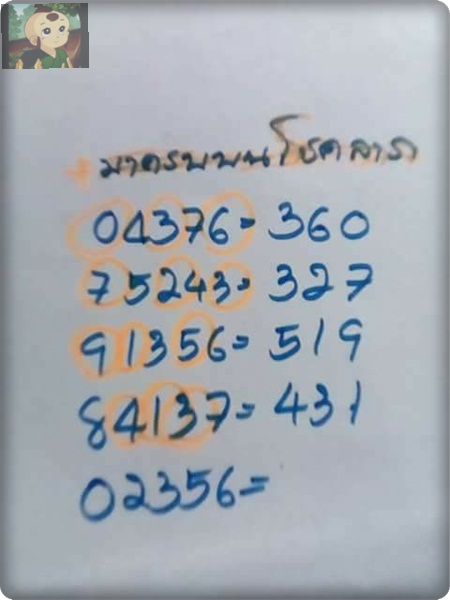 มาครบบนโชคลาภ
04376= 360
75243= 327
91356= 519
84137= 431
02356=